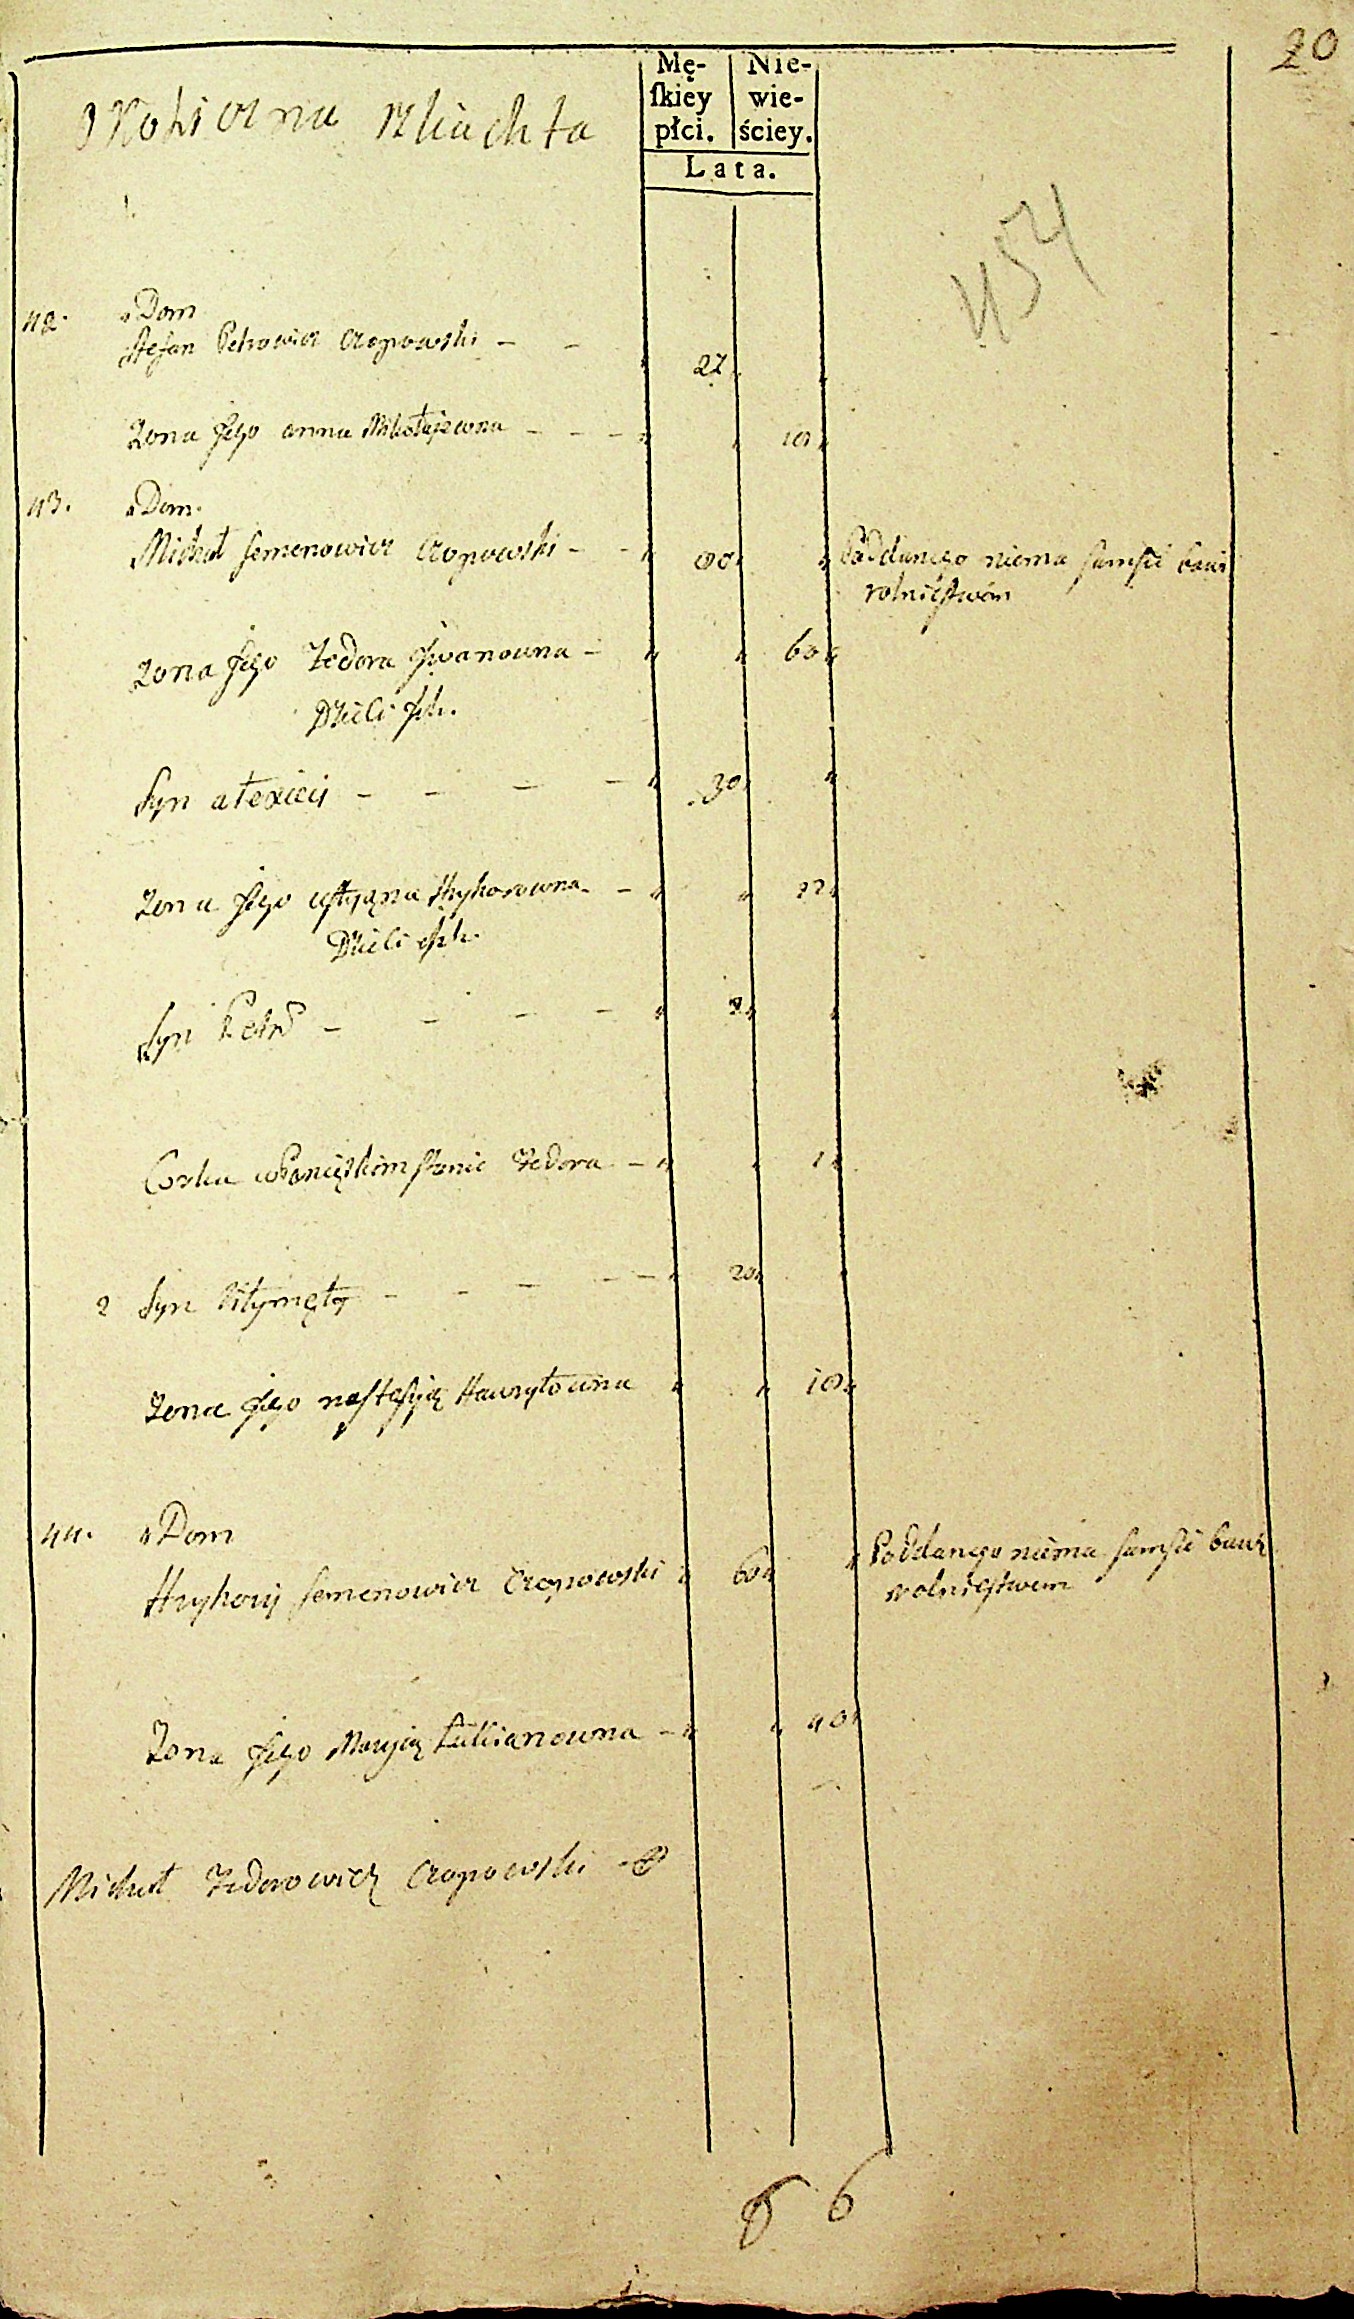 20
Okoliczna szliachta
Mę-
skiey
płci.
Nie-
wie-
ściey.
Lata.
454
42. Dom
Stefan Petrowicz Czopowski - - 27
Zona Jego anna Mikołajewna - - -
43. Dom.
Michał Semenowicz Czopowski - -
Poddanego niema samsie bawi
rolnictwem
Zona Jego Fedora Jwanowna - 60
Dzieci Jch.
Syn ałexiey - - - - 30
Zona Jego Hryhorowna - 22
Dzieci Jch.
Syn Petro - - - -
Corka wPanięskim stanie Fedora - 1
2 Syn - - - - - 20
Zona Jego nastasyią Hawryłowna
44. Dom
Hryhory Semenowicz Czopowski 60
Poddanego niema samsie bawi
rolnictwem
Zona Jego Maryią Łukianowna - 40
Michał Fedorowicz Czopowski -
6 6